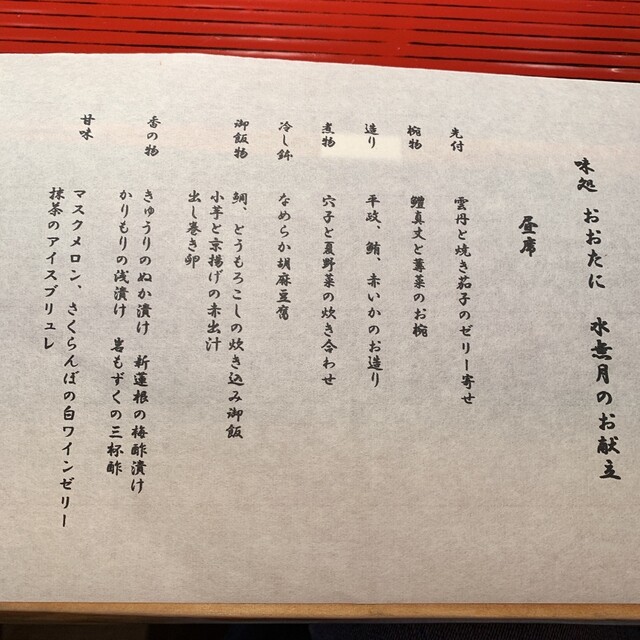 味処 おおたに 水無月のお献立
昼席
先付 雲丹と焼き茄子のゼリー寄せ
椀物 鱧真丈と蓴菜のお椀
造り 平政、鮪、赤いかのお造り
煮物 穴子と夏野菜の炊き合わせ
冷し鉢 なめらか胡麻豆腐
御飯物 鯛、とうもろこしの炊き込み御飯
小芋と京揚げの赤出汁
出し巻き卵
香の物 きゅうりのぬか漬け 新蓮根の梅酢漬け
かりもりの浅漬け 岩もずくの三杯酢
甘味 マスクメロン、さくらんぼの白ワインゼリー
抹茶のアイスブリュレ